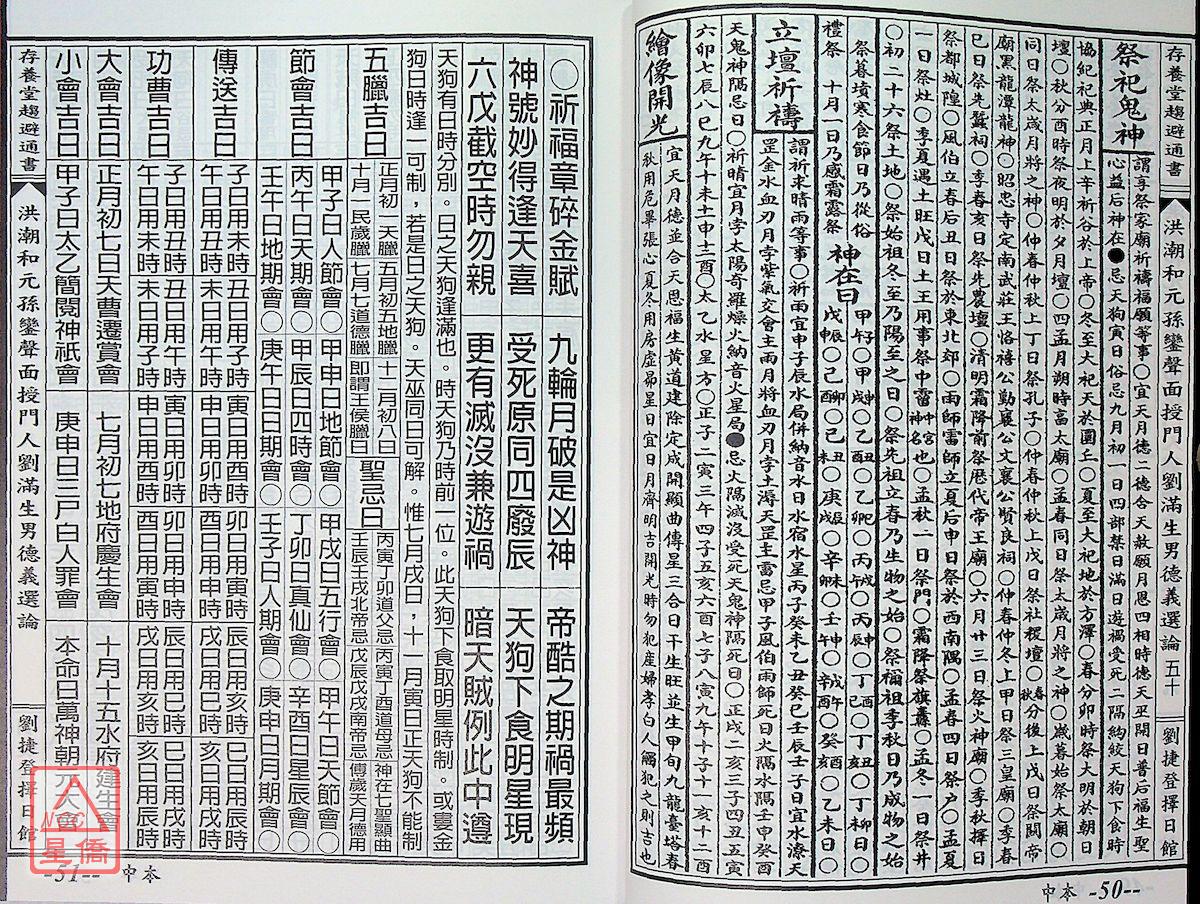 存養堂趨避通書 洪潮和元孫鑾聲面授門人劉滿生男德義選論 五十 劉捷登擇日館
祭祀鬼神
謂享祭家廟祈禱福願等事○宜天月德二德合天赦願月恩四相時德天巫開日普后福生聖
心益后神在●忌天狗寅日俗忌九月初一日四部禁日滿日遊禍受死二隔絢絞天狗下食時
協紀祀典正月上辛祈谷於上帝○冬至大祀天於圜丘○夏至大祀地於方澤○春分卯時祭大明於朝日
壇○秋分酉時祭夜明於夕月壇○四孟月朔時亯太廟○孟春同日祭太歲月將之神○歲暮始祭太廟○
同日祭太歲月將之神○仲春仲秋上丁日祭孔子○仲春仲秋上戊日祭社稷壇○春秋分後上戊日祭關帝
廟黑龍潭龍神○昭忠寺定南武莊王恪僖公勤襄公文襄公賢良祠○仲春仲冬上甲日祭三皇廟○季春
巳日祭先蠶祠○季春亥日祭先農壇○清明霜降前祭歷代帝王廟○六月廿三日祭火神廟○季秋擇日
祭都城隍○風伯立春后丑日祭於東北郊○雨師雷師立夏后申日祭於西南隅○孟春四日祭戶○孟夏
一日祭灶○季夏遇土旺戊日土王用事祭中霤中宮神名也○孟秋一日祭門○霜降祭旗纛○孟冬一日祭井
○初二十六祭土地○祭始祖冬至乃陽至之日○祭先祖立春乃生物之始○祭禰祖季秋日乃成物之始
祭暮墳寒食節日乃從俗
禮祭 十月一日乃感霜露祭
神在日
立壇祈禱
謂祈求晴雨等事○祈雨宜申子辰水局併納音水日水宿水星丙子癸未乙丑癸巳壬辰壬子日宜水潦天
罡金水血刃月孛紫氣交會主雨月將血刃月孛土濁天罡主雷忌甲子風伯雨師死日火隔水隔壬申癸酉
天鬼神隔忌日○祈晴宜月孛太陽奇羅燥火納音火星局●忌火隔滅沒受死天鬼神隔死日○正戌二亥三子四丑五寅
六卯七辰八巳九午十未十一申十二酉○太乙水星方○正子二寅三午四子五亥六酉七子八寅九午十子十一亥十二酉
繪像開光
宜天月德並合天恩福生黃道建除定成開顯曲傳星三合日干生旺並生甲旬九龍臺塔春
秋用危畢張心夏冬用房虛昴星日宜日月齊明吉開光時勿犯産婦孝白人觸犯之則吉也
中本 -50--
○祈福章碎金賦 九輪月破是凶神 帝酷之期禍最頻
神號妙得逢天喜 受死原同四廢辰 天狗下食明星現
六戊截空時勿親 更有滅沒兼遊禍 暗天賊例此中遵
天狗有日時分別。日之天狗逢滿也。時天狗乃時前一位。此天狗下食取明星時制。或婁金
狗日時逢一可制，若是日之天狗。天巫同日可解。惟七月戌日，十一月寅日正天狗不能制
五臘吉日
正月初一天臘 五月初五地臘 十二月初八日
十月一民歲臘 七月七道德臘 即謂王侯臘日
聖忌日
丙寅丁卯道父忌 丙寅丁酉道母忌 神在七聖顯曲
壬辰壬戌北帝忌 戊辰戊戌南帝忌 傳歲天月德用
節會吉日
甲子日人節會○甲申日地節會○甲戌日五行會○甲午日天節會○
丙午日天期會○甲辰日四時會○丁卯日真仙會○辛酉日星辰會○
壬午日地期會○庚午日日期會○壬子日人期會○庚申日月期會○
傳送吉日
子日用丑時 丑日用午時 寅日用申時 卯日用寅時 辰日用亥時 巳日用申時
午日用丑時 未日用午時 申日用卯時 酉日用寅時 戌日用巳時 亥日用戌時
功曹吉日
子日用丑時 丑日用午時 寅日用卯時 卯日用申時 辰日用巳時 巳日用戌時
午日用未時 未日用子時 申日用酉時 酉日用寅時 戌日用亥時 亥日用辰時
大會吉日 正月初七日天曹遷賞會 七月初七地府慶生會 十月十五水府建生會
小會吉日 甲子日太乙簡閱神祇會 庚申日三尸白人罪會 本命日萬神朝元大會
存養堂趨避通書 洪潮和元孫鑾聲面授門人劉滿生男德義選論 劉捷登擇日館
NCC
星僑
-51-- 中本